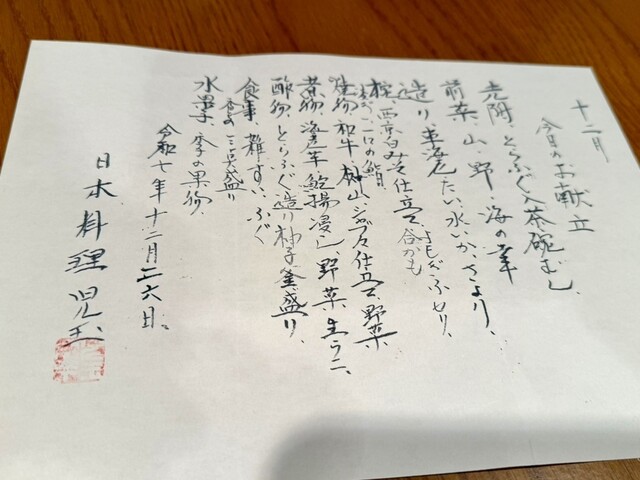 十二月
今日のお献立
先附、とらふぐ入茶碗むし、
前菜、山、野、海の幸
造り、車海老、たい、水いか、さより、
椀、西京白みそ仕立
合かも
よもぎふ、せり、
一口の鮨
焼物、和牛、仕立、野菜、
煮物、海老芋、鮑揚浸し、野菜、生うに、
酢物、とらふぐ造り柚子釜盛り、
食事、雑すい、ふぐ
香の三点盛り
水果、季の果物、
令和七年十二月二六日、
日本料理児玉